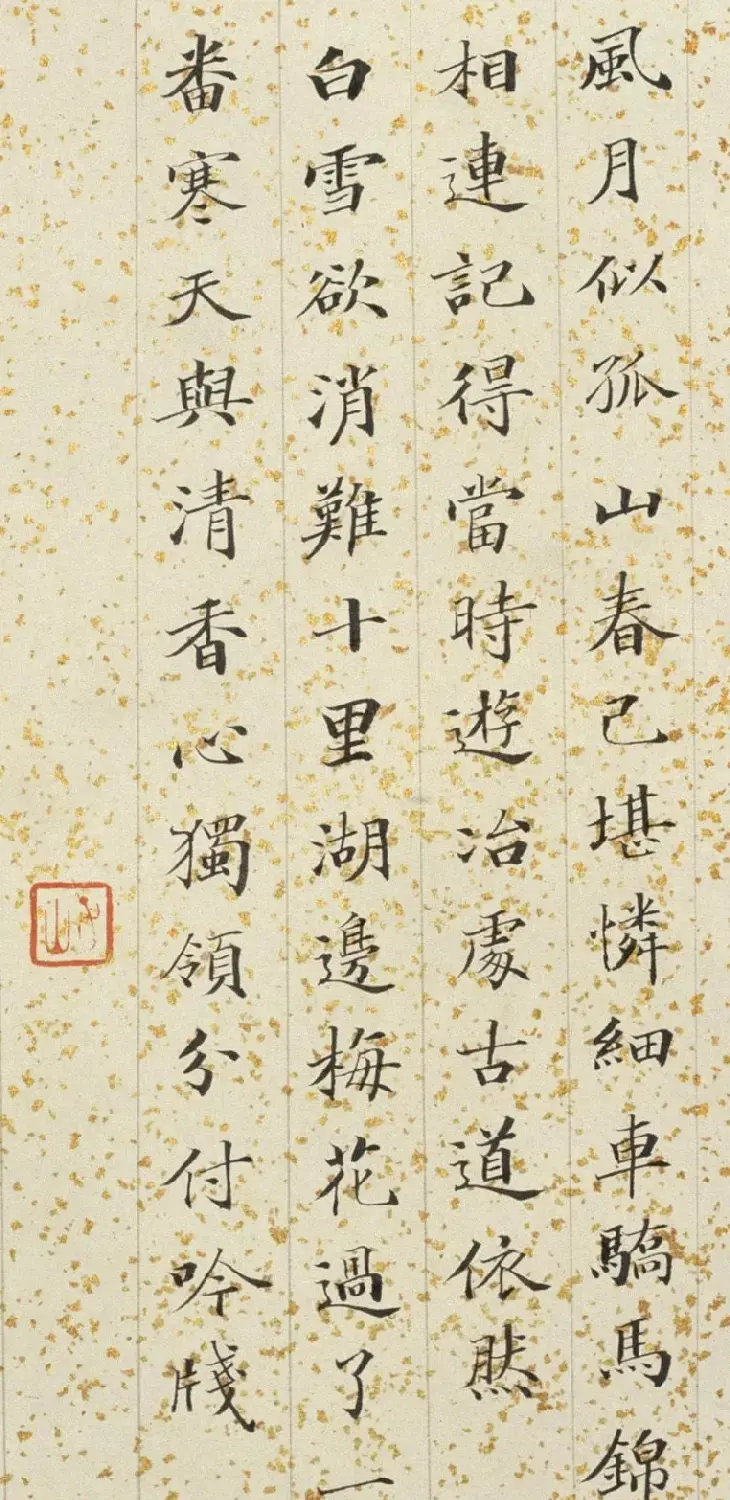 風月似孤山春已堪憐細車驕馬錦
相連記得當時遊冶處古道依然
白雪欲消難十里湖邊梅花過了一
番寒天與清香心獨領分付吟牋